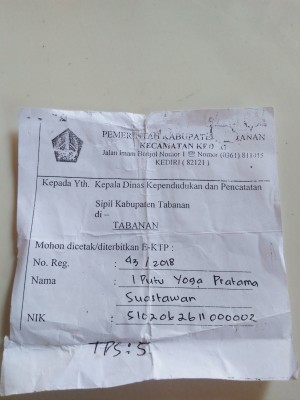 PEMERINTAH KABUPATEN TABANAN
KECAMATAN KEDIRI
Jalan Imam Bonjol Nomor 1 ☎ Nomor (0361)
KEDIRI ( 82121 )
Kepada Yth. Kepala Dinas Kependudukan dan Pencatatan
Sipil Kabupaten Tabanan
di –
TABANAN
Mohon dicetak/diterbitkan E-KTP :
No. Reg. : 43 / 2018
Nama : I Putu Yoga Pratama
Suastawan
NIK : 5102062611000002
TPS : 5